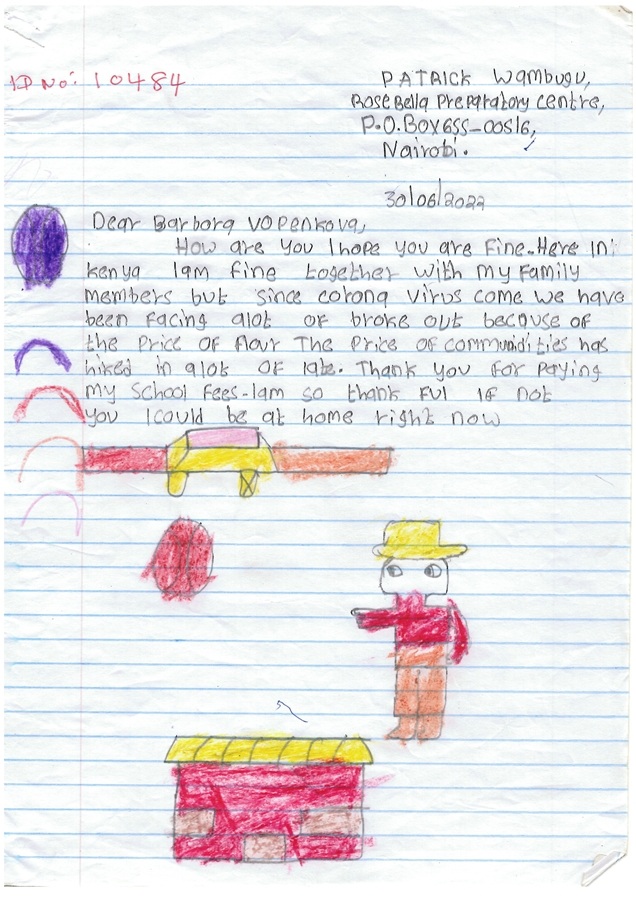 ID No: 10484
PATRICK Wambugu,
Rose Bella Preparatory centre,
P.O.BOX 655-00516,
Nairobi.
30/06/2022
Dear Barbora Vopenkova,
How are you I hope you are fine..Here in
kenya Iam fine together with my family
members but since corona virus come we have
been facing alot of broke out because of
the price of flour The price of communidities has
hiked in alot of late. Thank you for paying
my school fees-Iam so thank ful if not
you Icould be at home right now